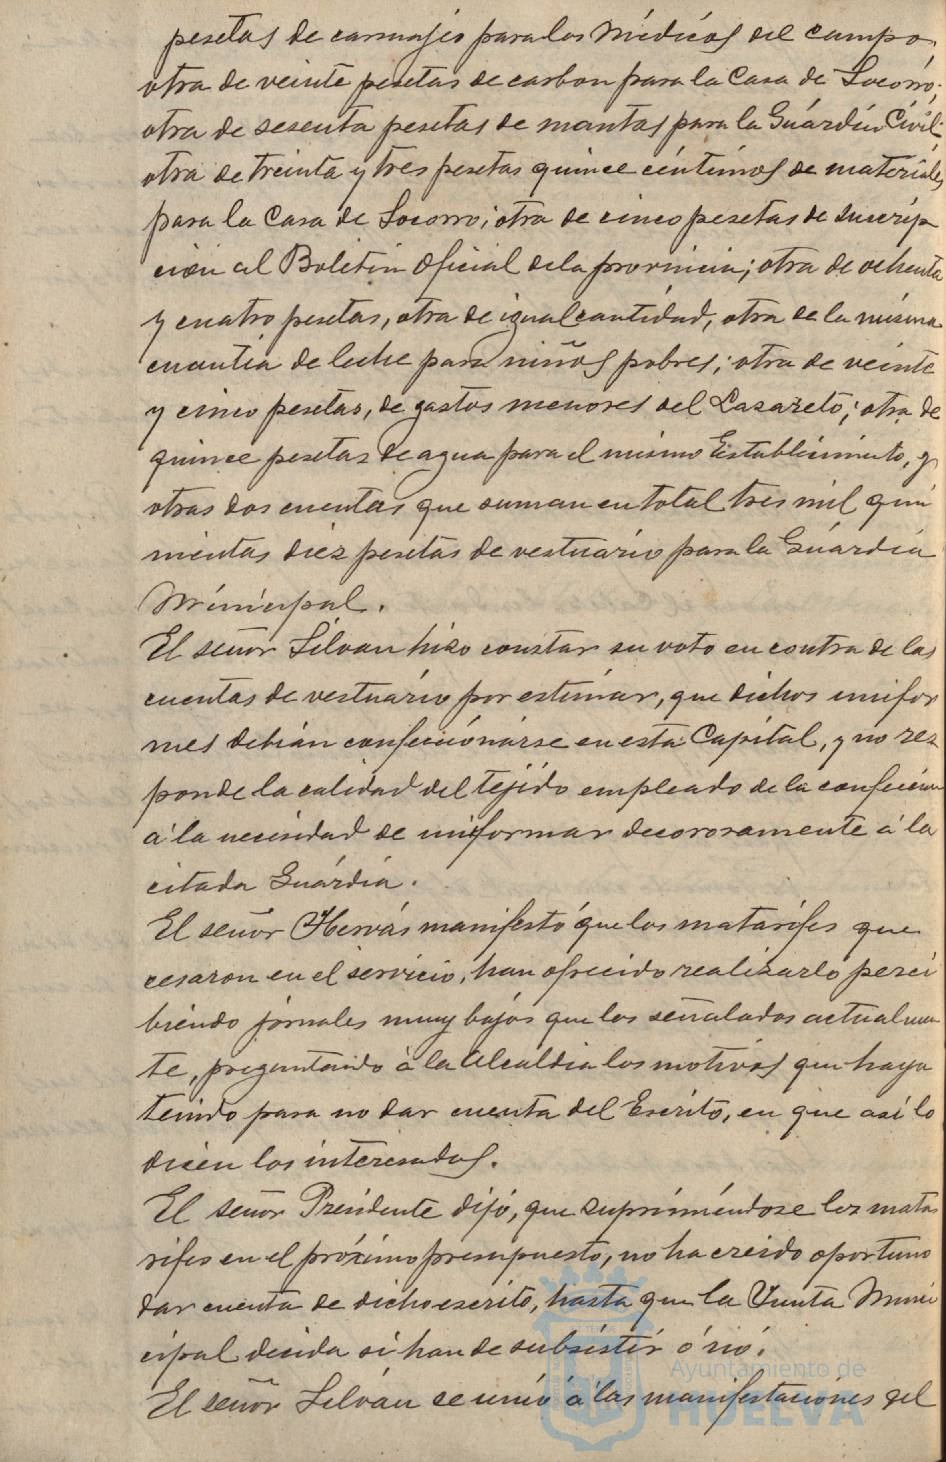 pesetas de carruajes para los Médicos del campo,
otra de veinte pesetas de carbon para la Casa de Socorro;
otra de sesenta pesetas de mantas para la Guárdia Civil
otra de treinta y tres pesetas quince céntimos de materiales
para la Casa de Socorro; otra de cinco pesetas de suscrip
ción al Boletin Oficial de la provincia; otra de ochenta
y cuatro pesetas, otra de igual cantidad, otra de la misma
cuantia de leche para niños pobres; otra de veinte
y cinco pesetas, de gastos menores del Lazareto; otra de
quince pesetas de agua para el mismo Establecimiento, y
otras dos cuentas que suman en total tres mil qui
nientas diez pesetas de vestuario para la Guárdia
Municipal.
El señor Silvan hizo constar su voto en contra de las
cuentas de vestuário por estimar, que dichos unifor
mes debián confeccionárse en esta Capital, y no res
ponde la calidad del tejido empleado de la confección
á la necesidad de uniformar decorosamente á la
citada Guárdia.
El señor Hervás manifestó que los matarifes que
cesaron en el servicio, han ofrecido realizarlo perci
biendo jornales muy bajos que los señalados actualmen
te, preguntando á la Alcaldia los motivos que haya
tenido para no dar cuenta del Escrito, en que así lo
dicen los interesados.
El señor Presidente dijo, que suprimiéndose los mata
rifes en el próximo presupuesto, no ha creido oportuno
dar cuenta de dicho escrito, hasta que la Junta Muni
cipal decida si han de subsistir ó nó.
El señor Silván se unió á las manifestaciones del
Ayuntamiento de
HUELVA